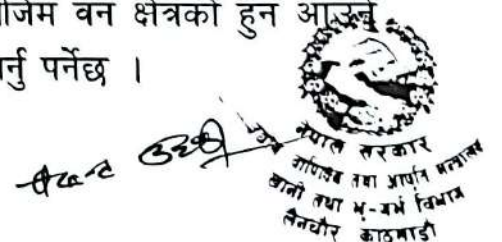 जिम वन क्षेत्रको हुन आउने
र्नु पर्नेछ ।
नेपाल सरकार
तथा आपूर्ति मन्त्रालय
खानी तथा भू-गर्भ विभाग
लैनचौर काठमाडौं